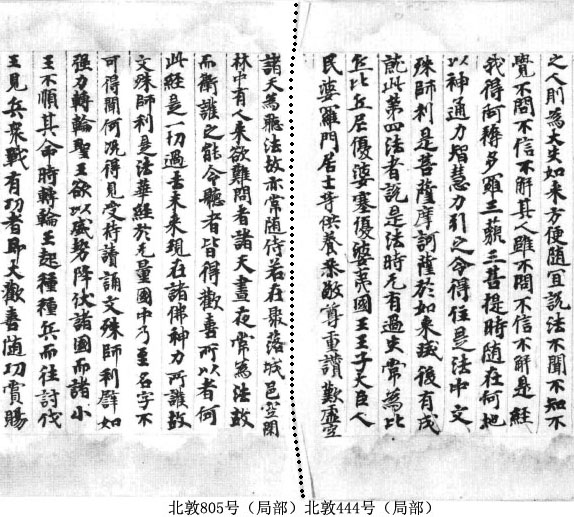 之人則為大失如來方便隨宜說法不聞不知不
覺不問不信不解其人雖不問不信不解是經
我得阿耨多羅三藐三菩提時隨在何地
以神通力智慧力引之令得住是法中文
殊師利是菩薩摩訶薩於如來滅後有成
就此第四法者說是法時无有過失常為比
丘比丘尼優婆塞優婆夷國王王子大臣人
民婆羅門居士等供養恭敬尊重讚歎虛空
諸天為聽法故亦常隨侍若在聚落城邑空閑
林中有人來欲難問者諸天晝夜常為法故
而衛護之能令聽者皆得歡喜所以者何
此經是一切過去未來現在諸佛神力所護故
文殊師利是法華經於无量國中乃至名字不
可得聞何況得見受持讀誦文殊師利譬如
強力轉輪聖王欲以威勢降伏諸國而諸小
王不順其命時轉輪王起種種兵而往討伐
王見兵衆戰有功者即大歡喜隨功賞賜
北敦805号（局部）北敦444号（局部）